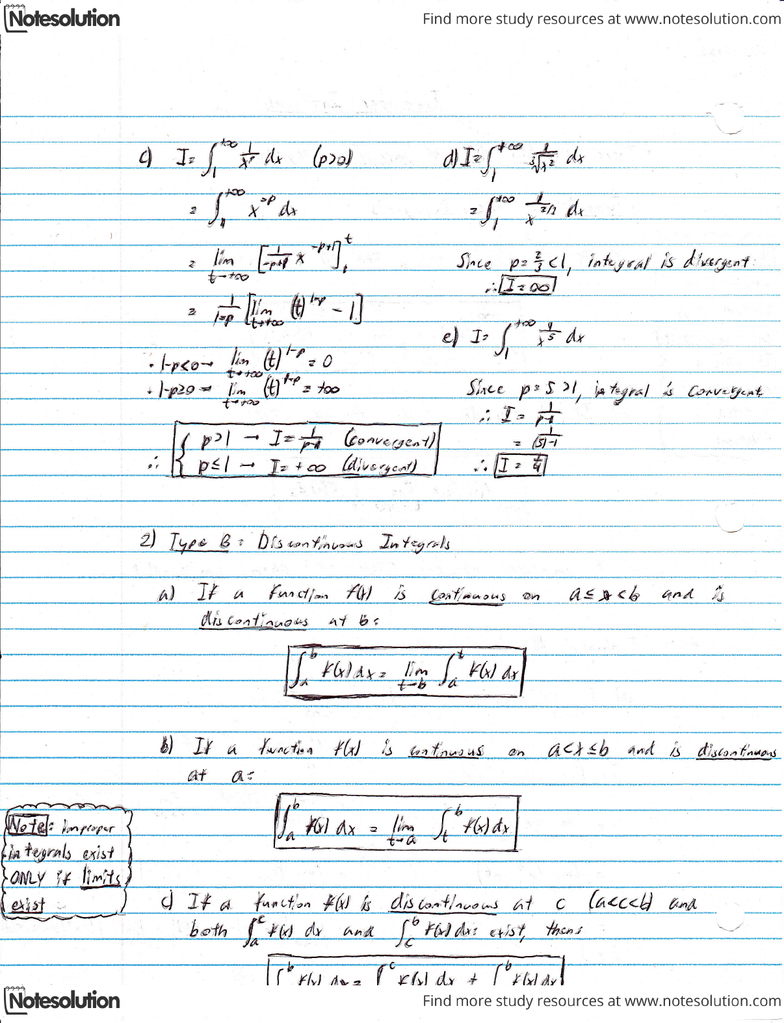 Notesolution
Find more study resources at www.notesolution.com
c) I = ∫₁^{+∞} 1/x^p dx (p>0)
= ∫₁^{+∞} x^{-p} dx
= lim_{t→+∞} [1/(-p+1) x^{-p+1}]₁^t
= 1/(1-p) [lim_{t→+∞} (t)^{1-p} - 1]
• 1-p<0 → lim_{t→+∞} (t)^{1-p} = 0
• 1-p≥0 → lim_{t→+∞} (t)^{1-p} = +∞
∴ { p>1 → I = 1/(p-1) (convergent)
p≤1 → I = +∞ (divergent)
d) I = ∫₁^{+∞} 1/∛x² dx
= ∫₁^{+∞} 1/x^{2/3} dx
Since p = 2/3 < 1, integral is divergent.
∴ I = ∞
e) I = ∫₁^{+∞} 1/x⁵ dx
Since p = 5 > 1, integral is convergent.
∴ I = 1/(p-1)
= 1/((5)-1)
∴ I = 1/4
2) Type B: Discontinuous Integrals
a) If a function f(x) is continuous on a≤x<b and is
discontinuous at b:
∫_a^b f(x) dx = lim_{t→b} ∫_a^t f(x) dx
b) If a function f(x) is continuous on a<x≤b and is discontinuous
at a:
∫_a^b f(x) dx = lim_{t→a} ∫_t^b f(x) dx
Note: improper
integrals exist
ONLY if limits
exist
c) If a function f(x) is discontinuous at c (a<c<b) and
both ∫_a^c f(x) dx and ∫_c^b f(x) dx: exist, then:
∫_a^b f(x) dx = ∫_a^c f(x) dx + ∫_c^b f(x) dx
Notesolution
Find more study resources at www.notesolution.com